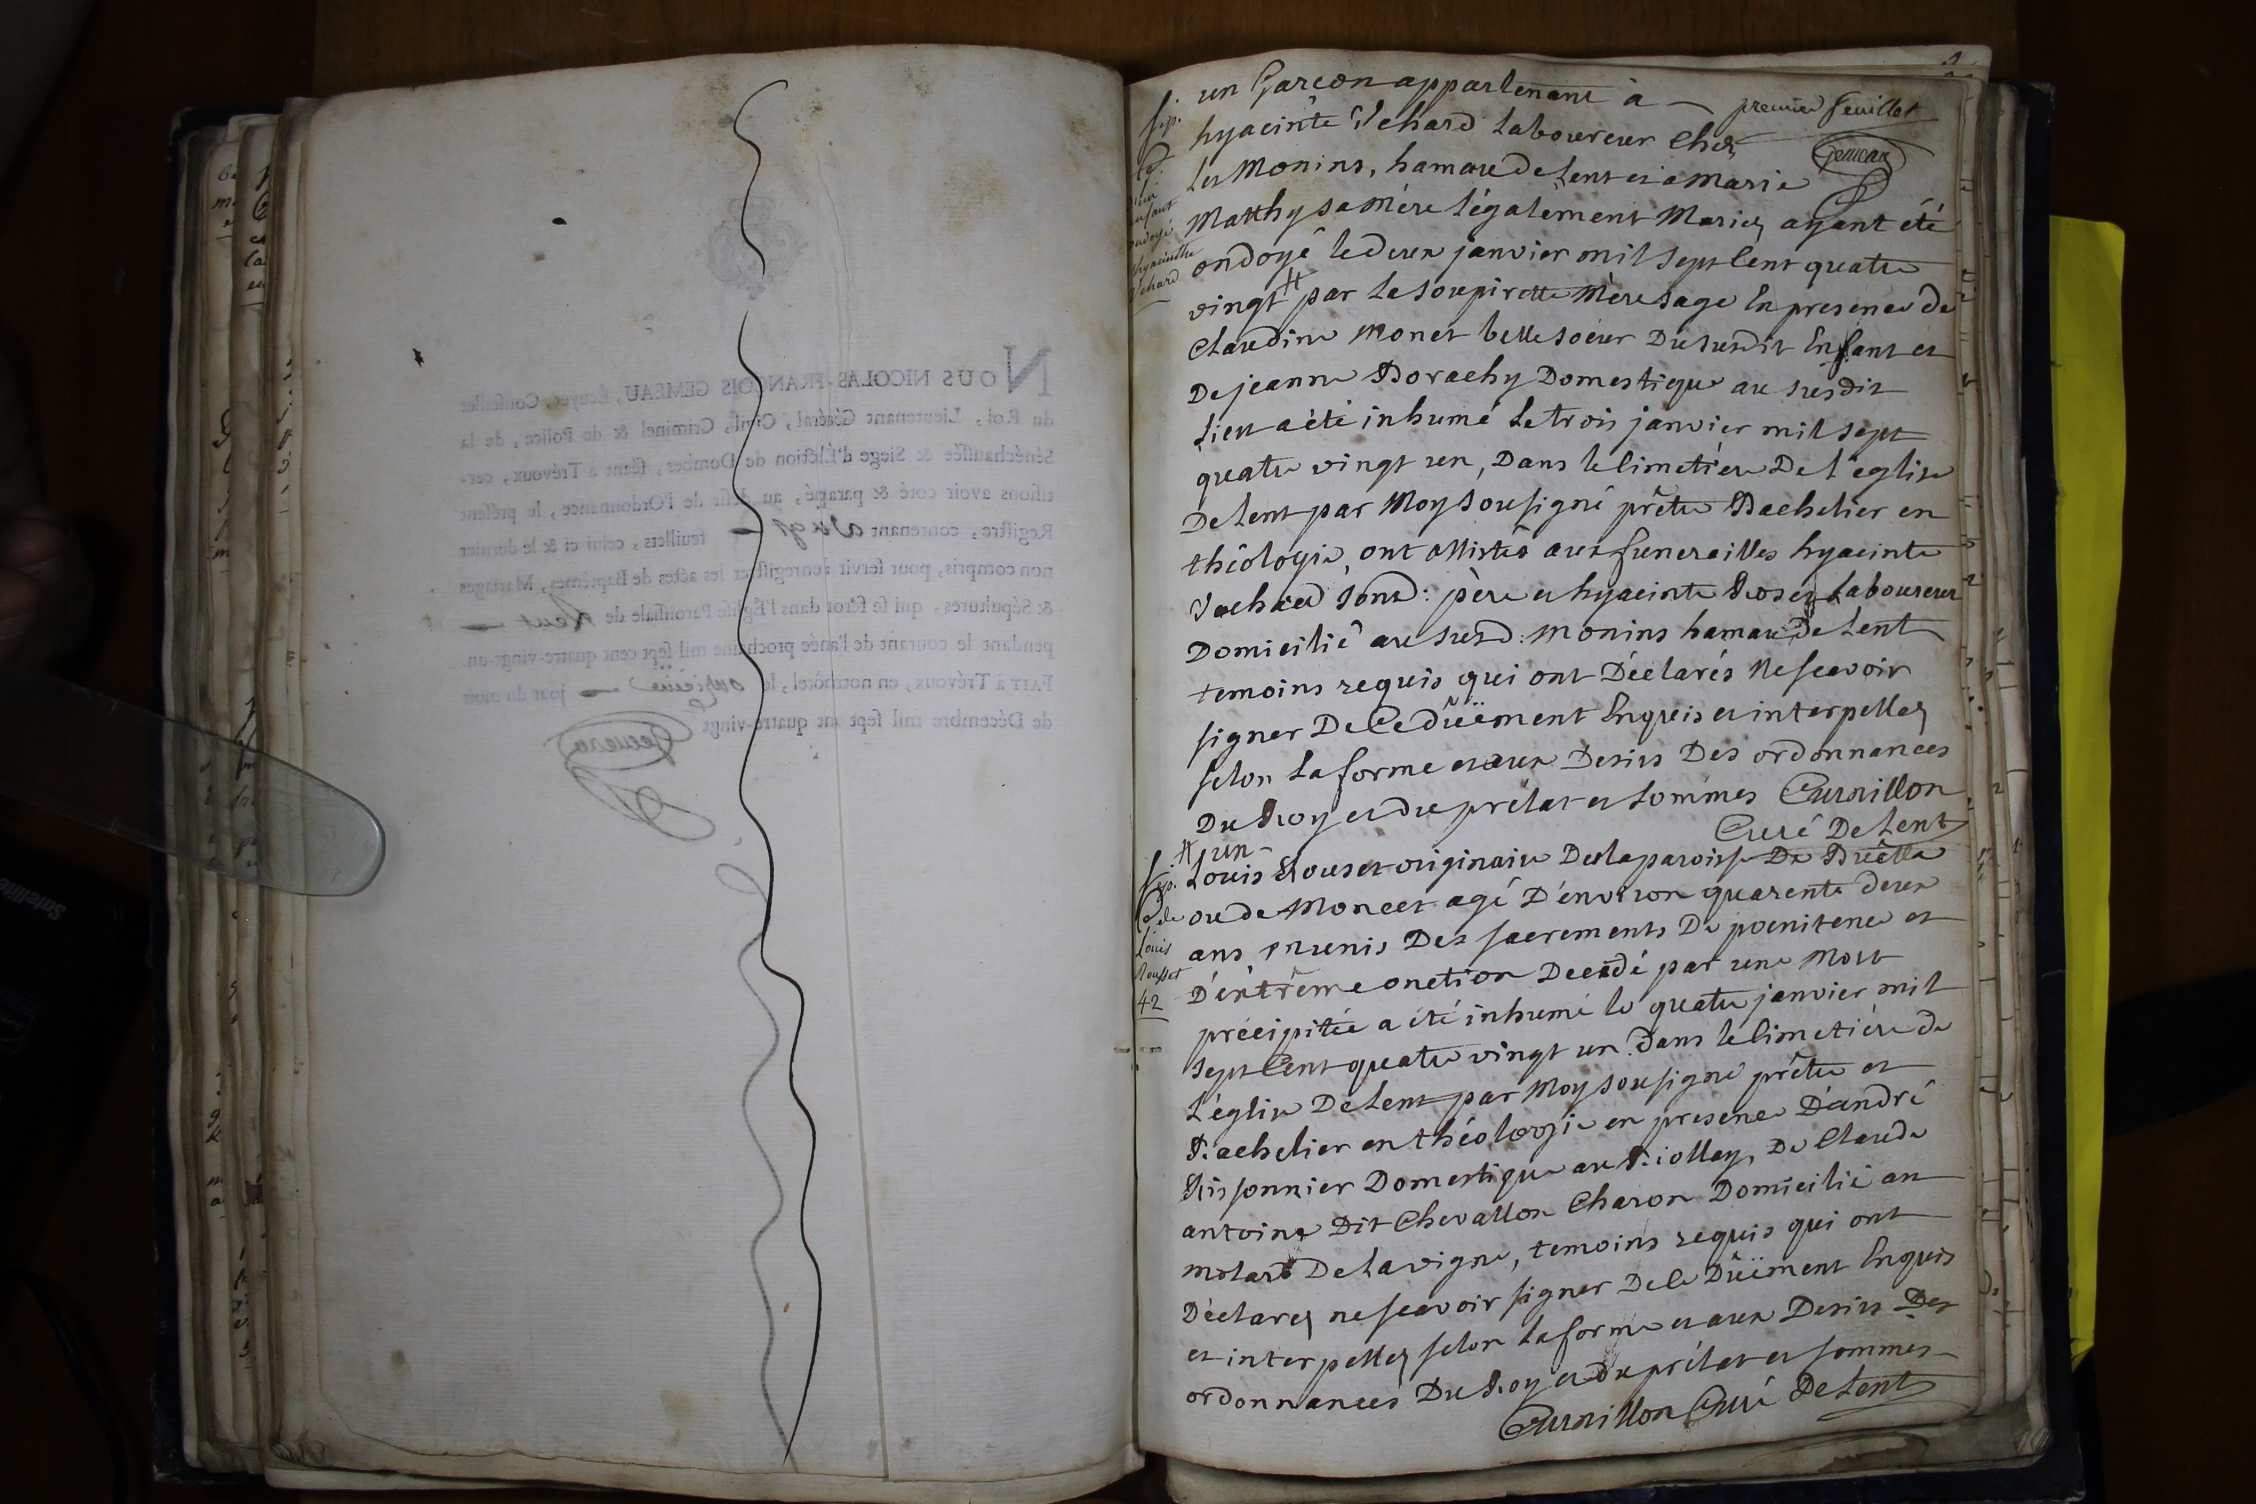 NOUS NICOLAS-FRANÇOIS GEMEAU, Ecuyer, Conseiller
du Roi, Lieutenant Général, Civil, Criminel & de Police, de la
Sénéchaussée & Siege d'Election de Dombes, séant à Trévoux, cer-
tifions avoir coté & paraphé, au désir de l'Ordonnance, le présent
Registre, contenant vingt feuillets, celui ci & le dernier
non compris, pour servir à enregistrer les actes de Baptêmes, Mariages
& Sépultures, qui se feront dans l'Eglise Paroissiale de Lent
pendant le courant de l'année prochaine mil sept cent quatre-vingt-un.
FAIT à Trévoux, en notre hôtel, le onzieme jour du mois
de Décembre mil sept cent quatre-vingt
premier feuillet
Sep.
enfant
ondoyé
hyacinthe
un Garcon appartenant à
hyacinte Vehard Laboureur Chez
Les Monins, hamau de Lent et a Marie
Matthy sa Mère Légalement Mariez ayant été
ondoyé le deux janvier mil sept Cent quatre
vingt # par La soupirette Mère sage En presence de
Claudine Monet belle soeur Du susdit Enfant et
De jeanne Borachy Domestique au susdit
Lieu a été inhumé Le trois janvier mil sept
quatre vingt un, Dans le Cimetiere De l'eglise
De Lent par Moy soussigné prêtre Bachelier en
théologie, ont assistés aux funerailles hyacinte
Vehard sond: père et hyacinte Laboureur
Domicilié au susd: Monins hamau De Lent
temoins requis qui ont Déclarés Ne scavoir
signer De Ce dûëment Enquis et interpellez
selon La forme et aux Desirs Des ordonnances
Du Roy et du prélat et sommés Curnillon
Curé De Lent
# un
Sep.
De
Louis
Rousset
42
Louis Rouset originaire De la paroisse De
ou de Moncet agé D'environ quarente deux
ans Munis Des sacrements De poenitence et
D'extrême onction Decedé par une Mort
précipitée a été inhumé le quatre janvier mil
sept Cent quatre vingt un Dans le Cimetiére de
L'église De Lent par Moy soussigné prêtre et
Bachelier en théologie en presence D'andré
Domestique au De Claude
antoine Dit Chevallon Charon Domicilié au
Molard De La vigne, temoins requis qui ont
Déclarez ne scavoir signer De Ce Dûëment Enquis
et interpellez selon La forme et aux Desirs Des
ordonnances Du Roy et du prélat et sommés
Curnillon Curé De Lent